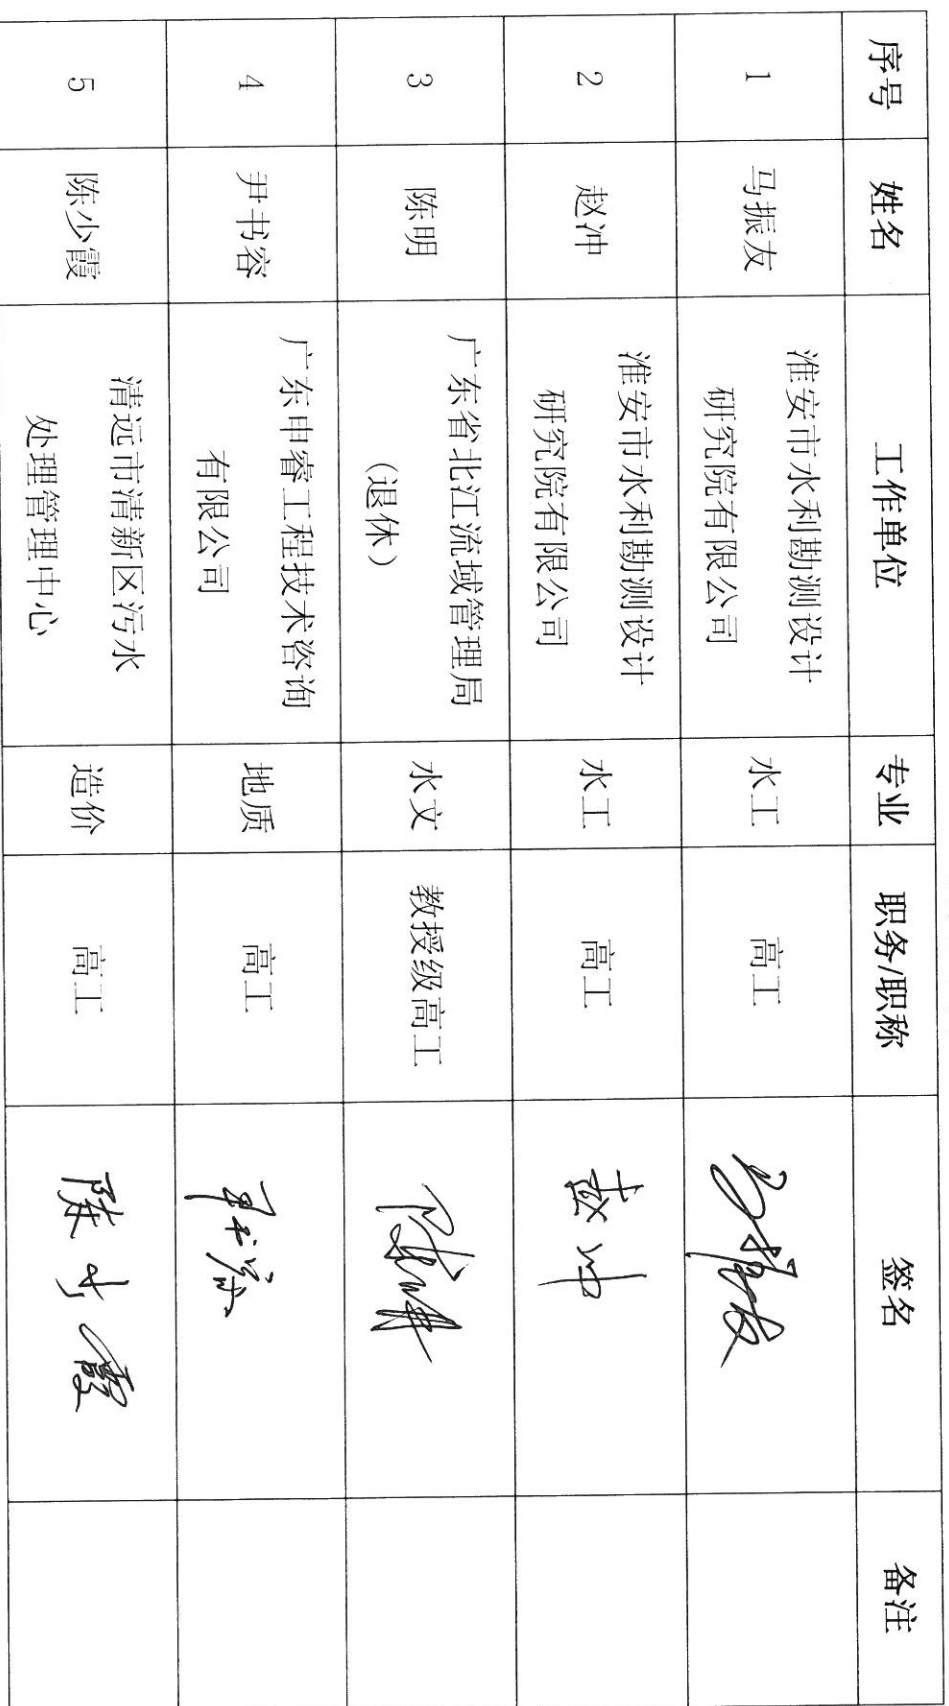 序号 姓名 工作单位 专业 职务/职称 签名 备注
1 马振友 淮安市水利勘测设计
研究院有限公司 水工 高工 马振友
2 赵冲 淮安市水利勘测设计
研究院有限公司 水工 高工 赵冲
3 陈明 广东省北江流域管理局
(退休) 水文 教授级高工
4 尹书容 广东申睿工程技术咨询
有限公司 地质 高工
5 陈少霞 清远市清新区污水
处理管理中心 造价 高工 陈少霞